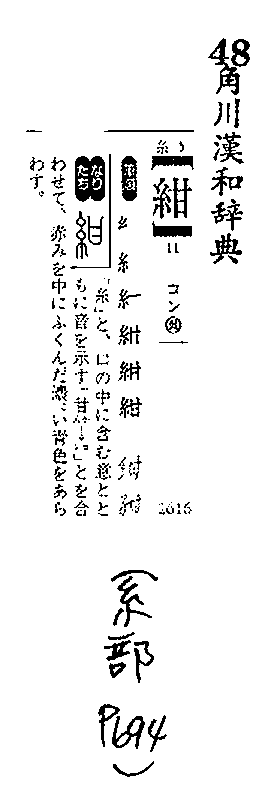 48
角川漢和辞典
糸5
【紺】
11
コン㊊
2616
筆順
幺 糸 紅 紺 紺 紺
なりたち
紺
「糸」と、口の中に含む意とと
もに音を示す「甘」とを合
わせて、赤みを中にふくんだ濃い青色をあら
わす。
(糸部
P694)